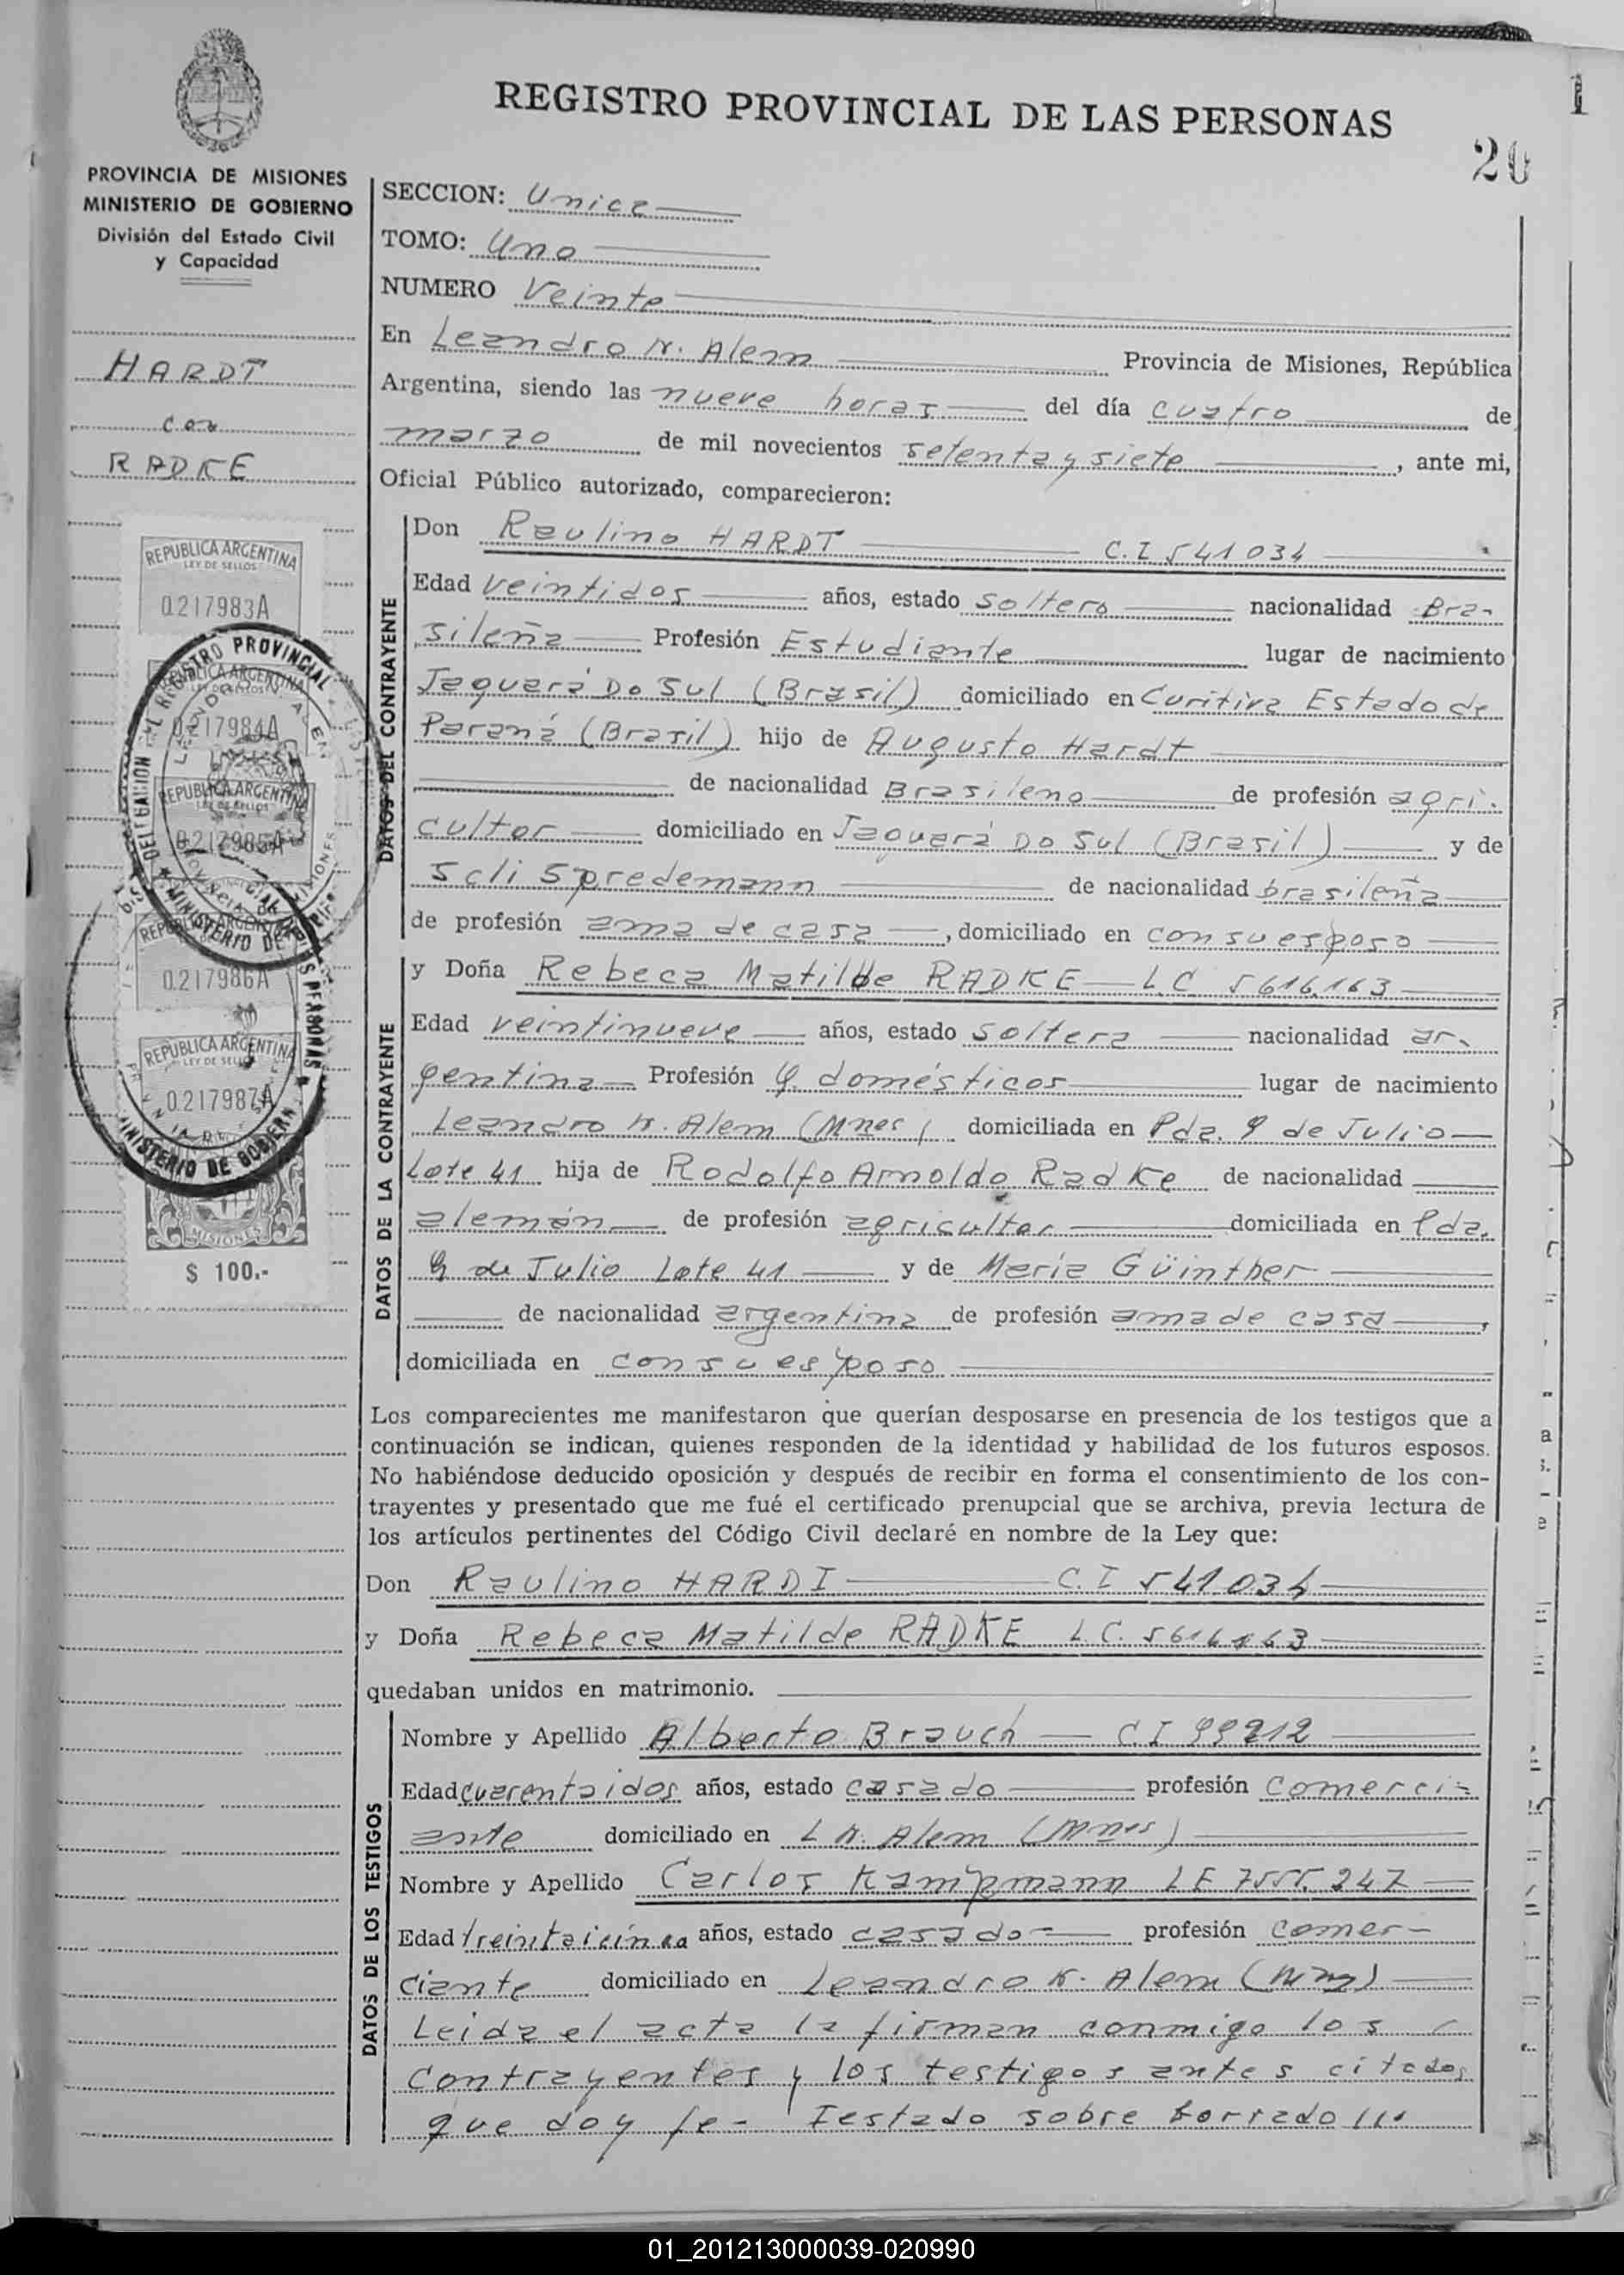 REGISTRO PROVINCIAL DE LAS PERSONAS
1
20
PROVINCIA DE MISIONES
MINISTERIO DE GOBIERNO
División del Estado Civil
y Capacidad
HARDT
con
RADKE
REPUBLICA ARGENTINA
LEY DE SELLOS
0.217983A
REPUBLICA ARGENTINA
0217984A
REPUBLICA ARGENTINA
LEY DE SELLOS
0217985A
0.217986A
REPUBLICA ARGENTINA
LEY DE SELLOS
0217987A
MINISTERIO DE GOBIERNO
MISIONES
$ 100.-
SECCION: Unica
TOMO: Uno
NUMERO Veinte
En Leandro N. Alem Provincia de Misiones, República
Argentina, siendo las nueve horas del día cuatro de
marzo de mil novecientos setenta y siete, ante mi,
Oficial Público autorizado, comparecieron:
DATOS DEL CONTRAYENTE
Don Raulino HARDT C.I 541034
Edad veintidos años, estado soltero nacionalidad Bra-
sileña Profesión Estudiante lugar de nacimiento
Jaguará Do Sul (Brasil) domiciliado en Curitiva Estado de
Paraná (Brasil) hijo de Augusto Hardt
de nacionalidad Brasileno de profesión agri-
cultor domiciliado en Jaguará Do Sul (Brasil) y de
Scli Spredemann de nacionalidad brasileña
de profesión ama de casa, domiciliado en con su esposo
DATOS DE LA CONTRAYENTE
y Doña Rebeca Matilde RADKE L.C 5616.163
Edad veintinueve años, estado soltera nacionalidad ar-
gentina Profesión Q. domésticos lugar de nacimiento
Leandro N. Alem (Mnes) domiciliada en Pda. 9 de Julio
Lote 41 hija de Rodolfo Arnoldo Radke de nacionalidad
alemán de profesión agricultor domiciliada en Pda.
9 de Julio Lote 41 y de Maria Güinther
de nacionalidad argentina de profesión ama de casa,
domiciliada en con su esposo
Los comparecientes me manifestaron que querían desposarse en presencia de los testigos que a
continuación se indican, quienes responden de la identidad y habilidad de los futuros esposos.
No habiéndose deducido oposición y después de recibir en forma el consentimiento de los con-
trayentes y presentado que me fué el certificado prenupcial que se archiva, previa lectura de
los artículos pertinentes del Código Civil declaré en nombre de la Ley que:
Don Raulino HARDT C.I 541034
y Doña Rebeca Matilde RADKE L.C. 5616163
quedaban unidos en matrimonio.
DATOS DE LOS TESTIGOS
Nombre y Apellido Alberto Brauch C.I 99212
Edad cuarentaidos años, estado casado profesión comerci-
ante domiciliado en L N. Alem (Mnes)
Nombre y Apellido Carlos Kampmann LE 7555.247
Edad treintaicinco años, estado casado profesión comer-
ciante domiciliado en Leandro N. Alem (Mnes)
Leida el acta la firman conmigo los
contrayentes y los testigos antes citados
que doy fe - Testado sobre borrado ///
01_201213000039-020990